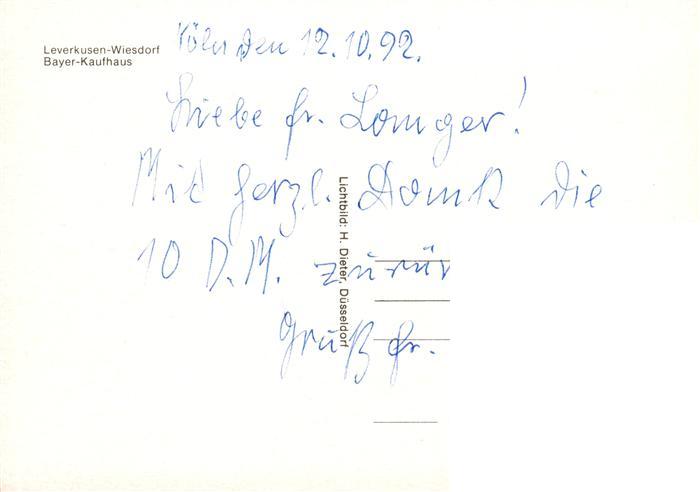 Leverkusen-Wiesdorf
Bayer-Kaufhaus
Köln den 12.10.92.
Liebe Fr. Lomger!
Mit herzl. Dank die
10 D.M. zurür
Gruß Fr.
Lichtbild: H. Dieter, Düsseldorf